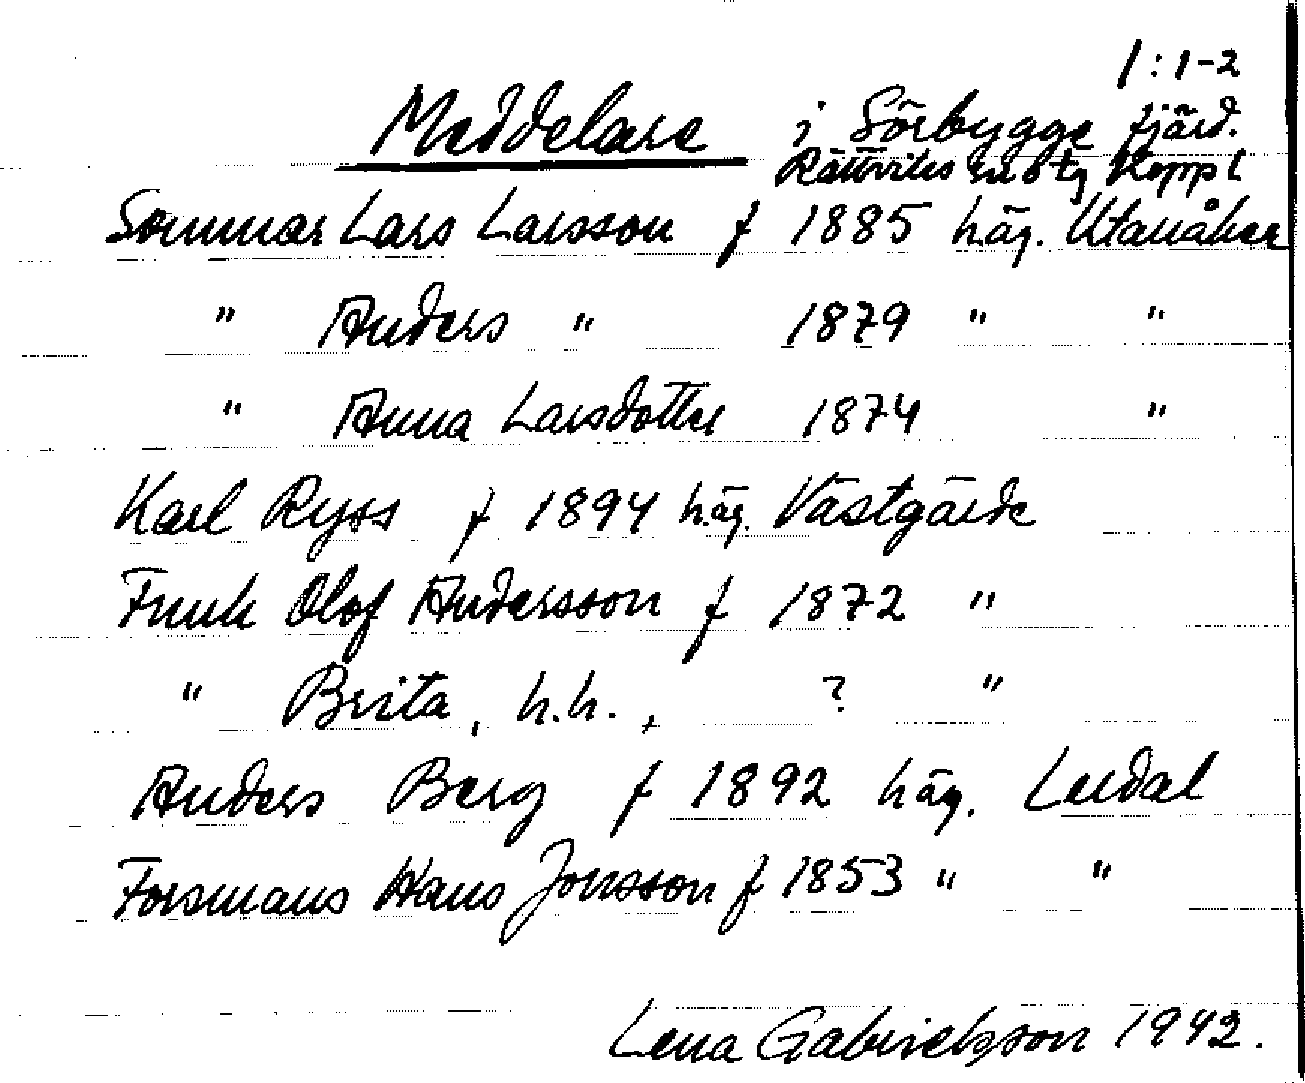 1:1-2
Meddelare i Sörbygge fjärd.
Rättviks sn o tg Koppl
Sommar Lars Larsson f 1885 häg. Utanåker
" Anders " 1879 " "
" Anna Larsdotter 1874 "
Karl Ryss f 1894 häg. Västgärde
Frunk Olof Andersson f 1872 "
" Brita, h.h., ? "
Anders Berg f 1892 häg. Lerdal
Forsmans Hans Jonsson f 1853 " "
Lena Gabrielsson 1942.